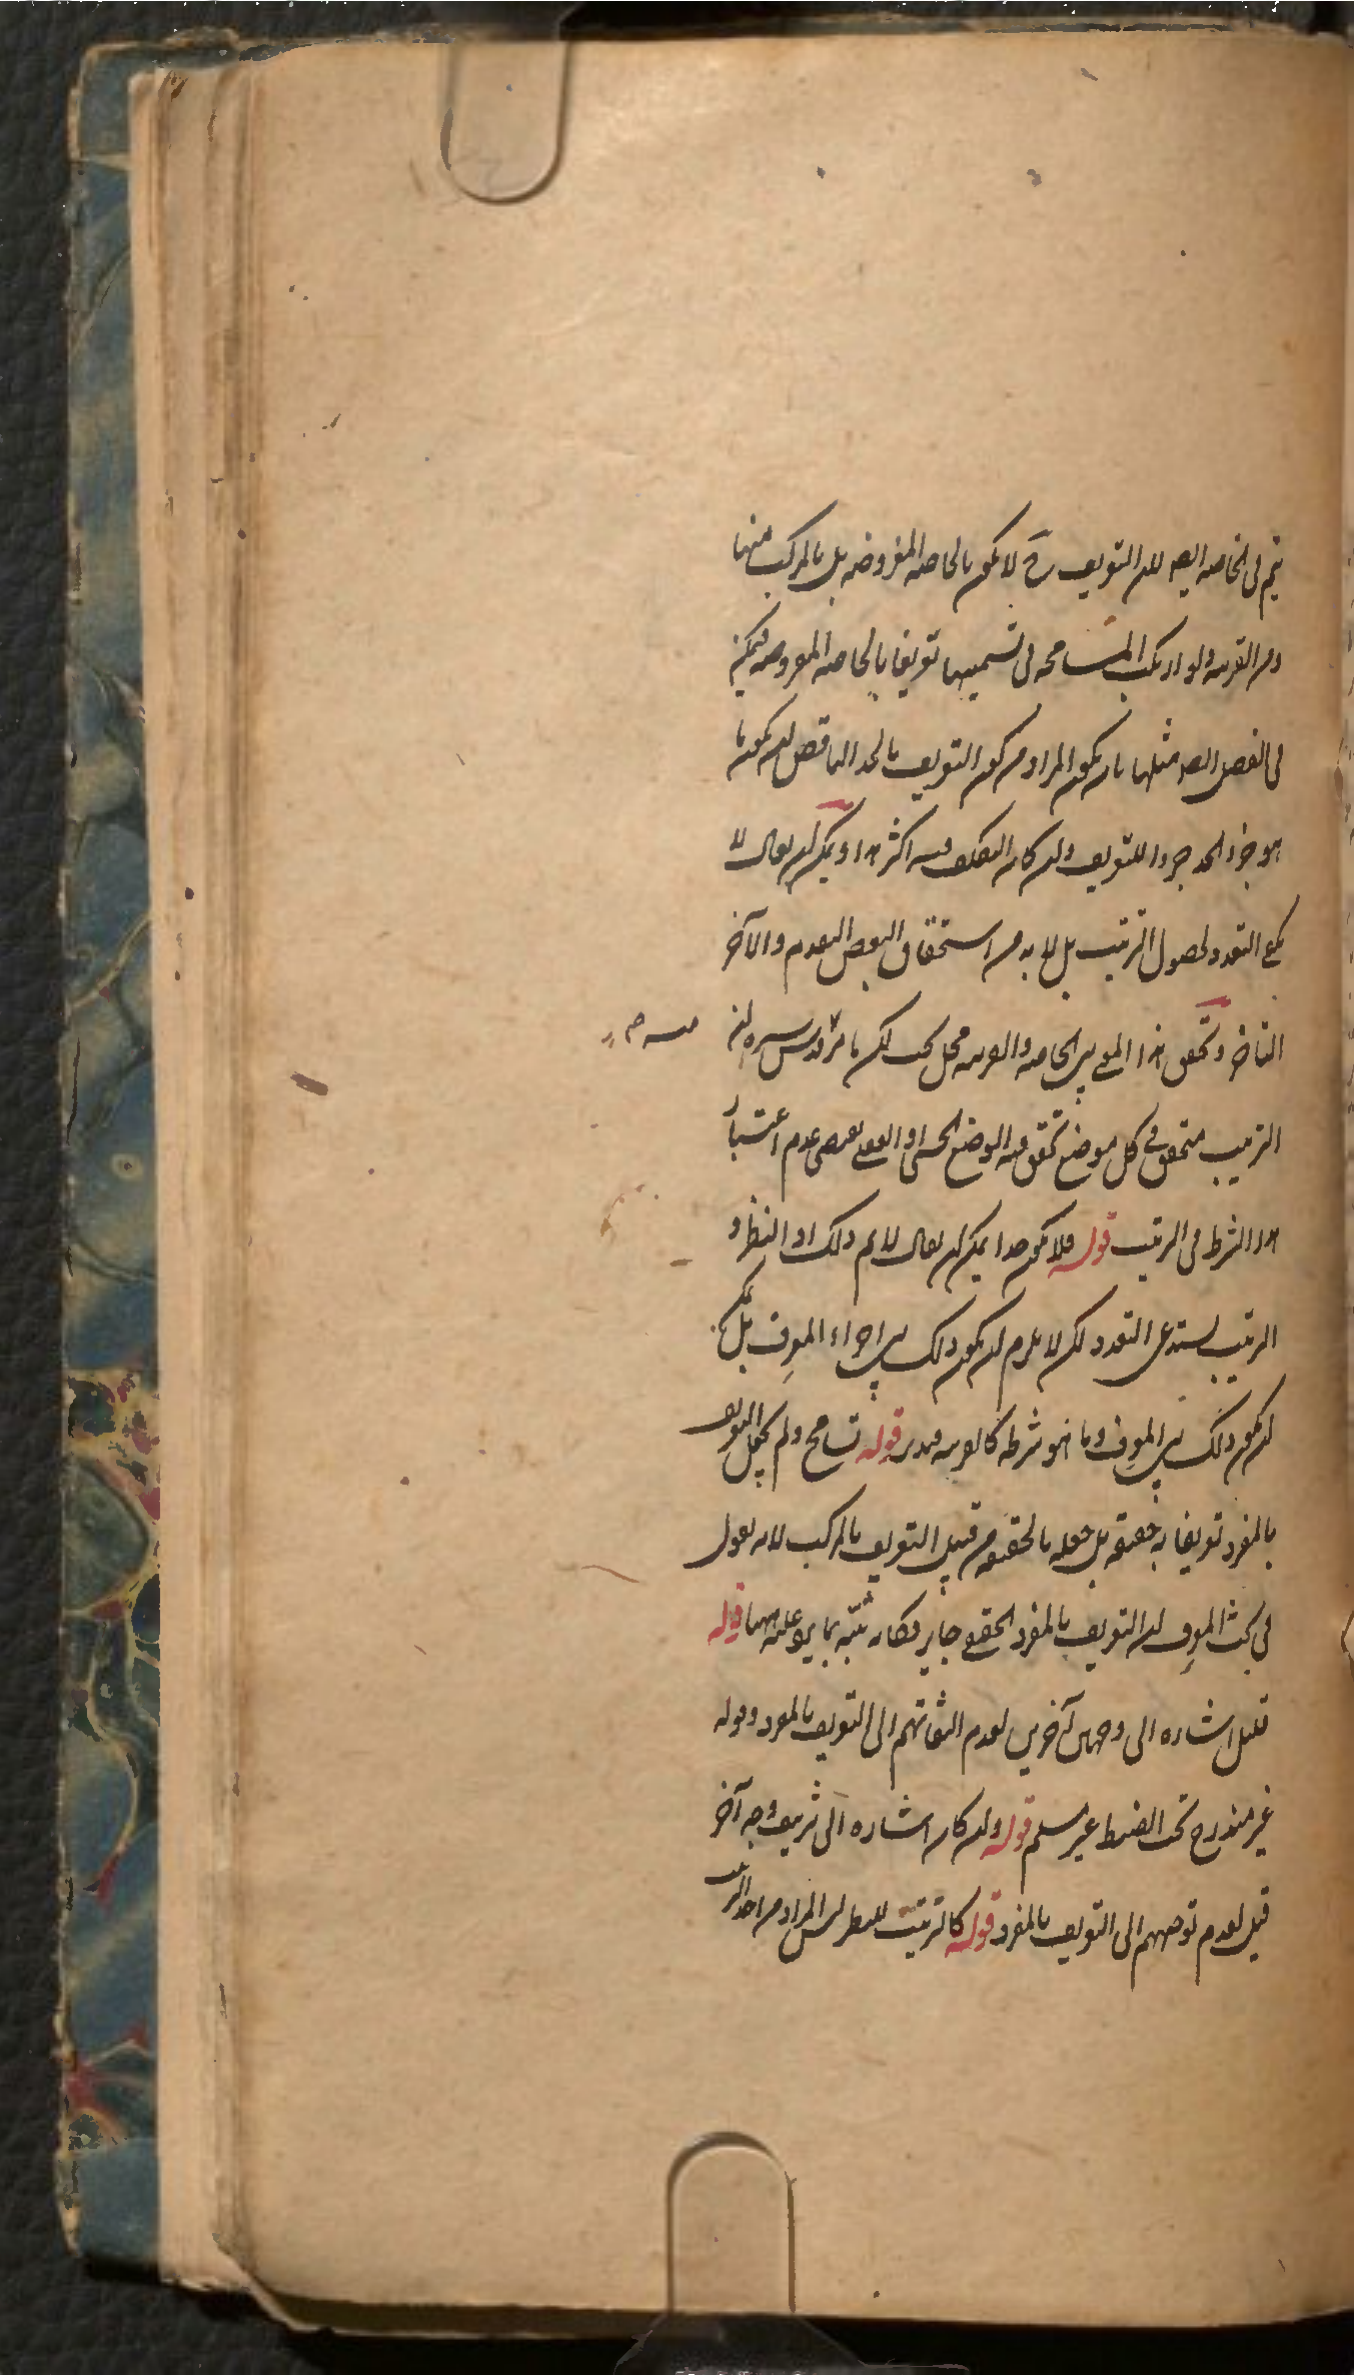 يتم في الخاصه ايضا لان التعريف ح لا يكون بالخاصه المفروضه بل بالمركب منها
ومن القرينه ولو ارتكب المسامحه في تسميتها تعريفا بالخاصه المفروضه فيمكن
في الفصل ايضا مثلها بان يكون المراد من كون التعريف بالحد الناقص ان يكون ما
هو جزء الحد جزءا للتعريف وان كان التكلف فيه اكثر هذا ويمكن ان يقال لا
يكفي التعدد لحصول الترتيب بل لا بد من استحقاق البعض التقدم والآخر
التاخر وتحقق هذا المعنى بين الخاصه والقرينه محل بحث لكن ما مر قدس سره ان
الترتيب متحقق في كل موضع تحقق فيه الوضع الحسي او العقلي يقتضي عدم اعتبار
هذا الشرط في الترتيب قوله فلا يكون حدا يمكن ان يقال لا نم ذلك اذ النظر و
الترتيب يستدعي التعدد لكن لا يلزم ان يكون ذلك بين اجزاء المعرف بل يمكن
ان يكون ذلك بين المعرف وما هو شرطه كالقرينه فتدبر قوله تسامح ولم يجعل التعريف
بالمفرد تعريفا به حقيقه بل جعله بالحقيقه من قبيل التعريف بالمركب لانه يقول
في بحث المعرف ان التعريف بالمفرد الحقيقي جايز فكانه نبه بما يرد عليه ههنا قوله
قليل اشاره الى وجهين آخرين لعدم التفاتهم الى التعريف بالمفرد وقوله
غير مندرج تحت الضبط غير مسلم قوله وان كان اشاره الى تزييف وجه آخر
قيل لعدم توجههم الى التعريف بالمفرد قوله كالترتيب للنظر ليس المراد من اخذ